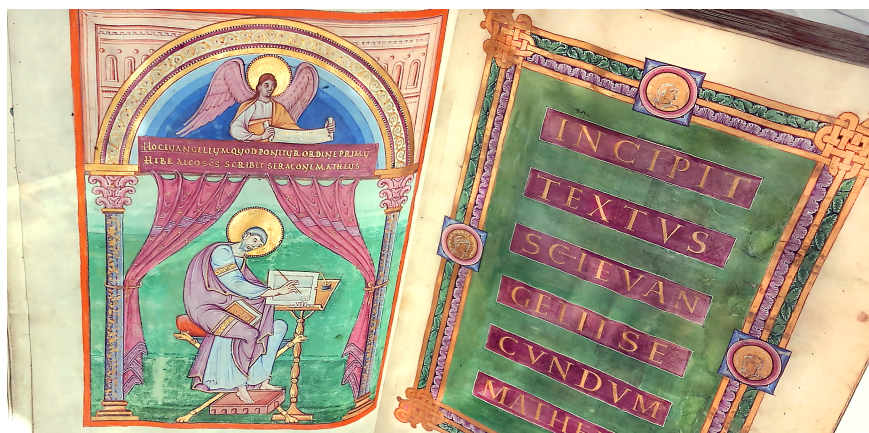 HOC EVANGELIUM QVOD PONITVR ORDINE PRIMV
HIBRAICO SCS SCRIBIT SERMONE MATHEVS
INCIPIT
TEXTVS
SCI EVAN
GELII SE
CVNDVM
MATHE